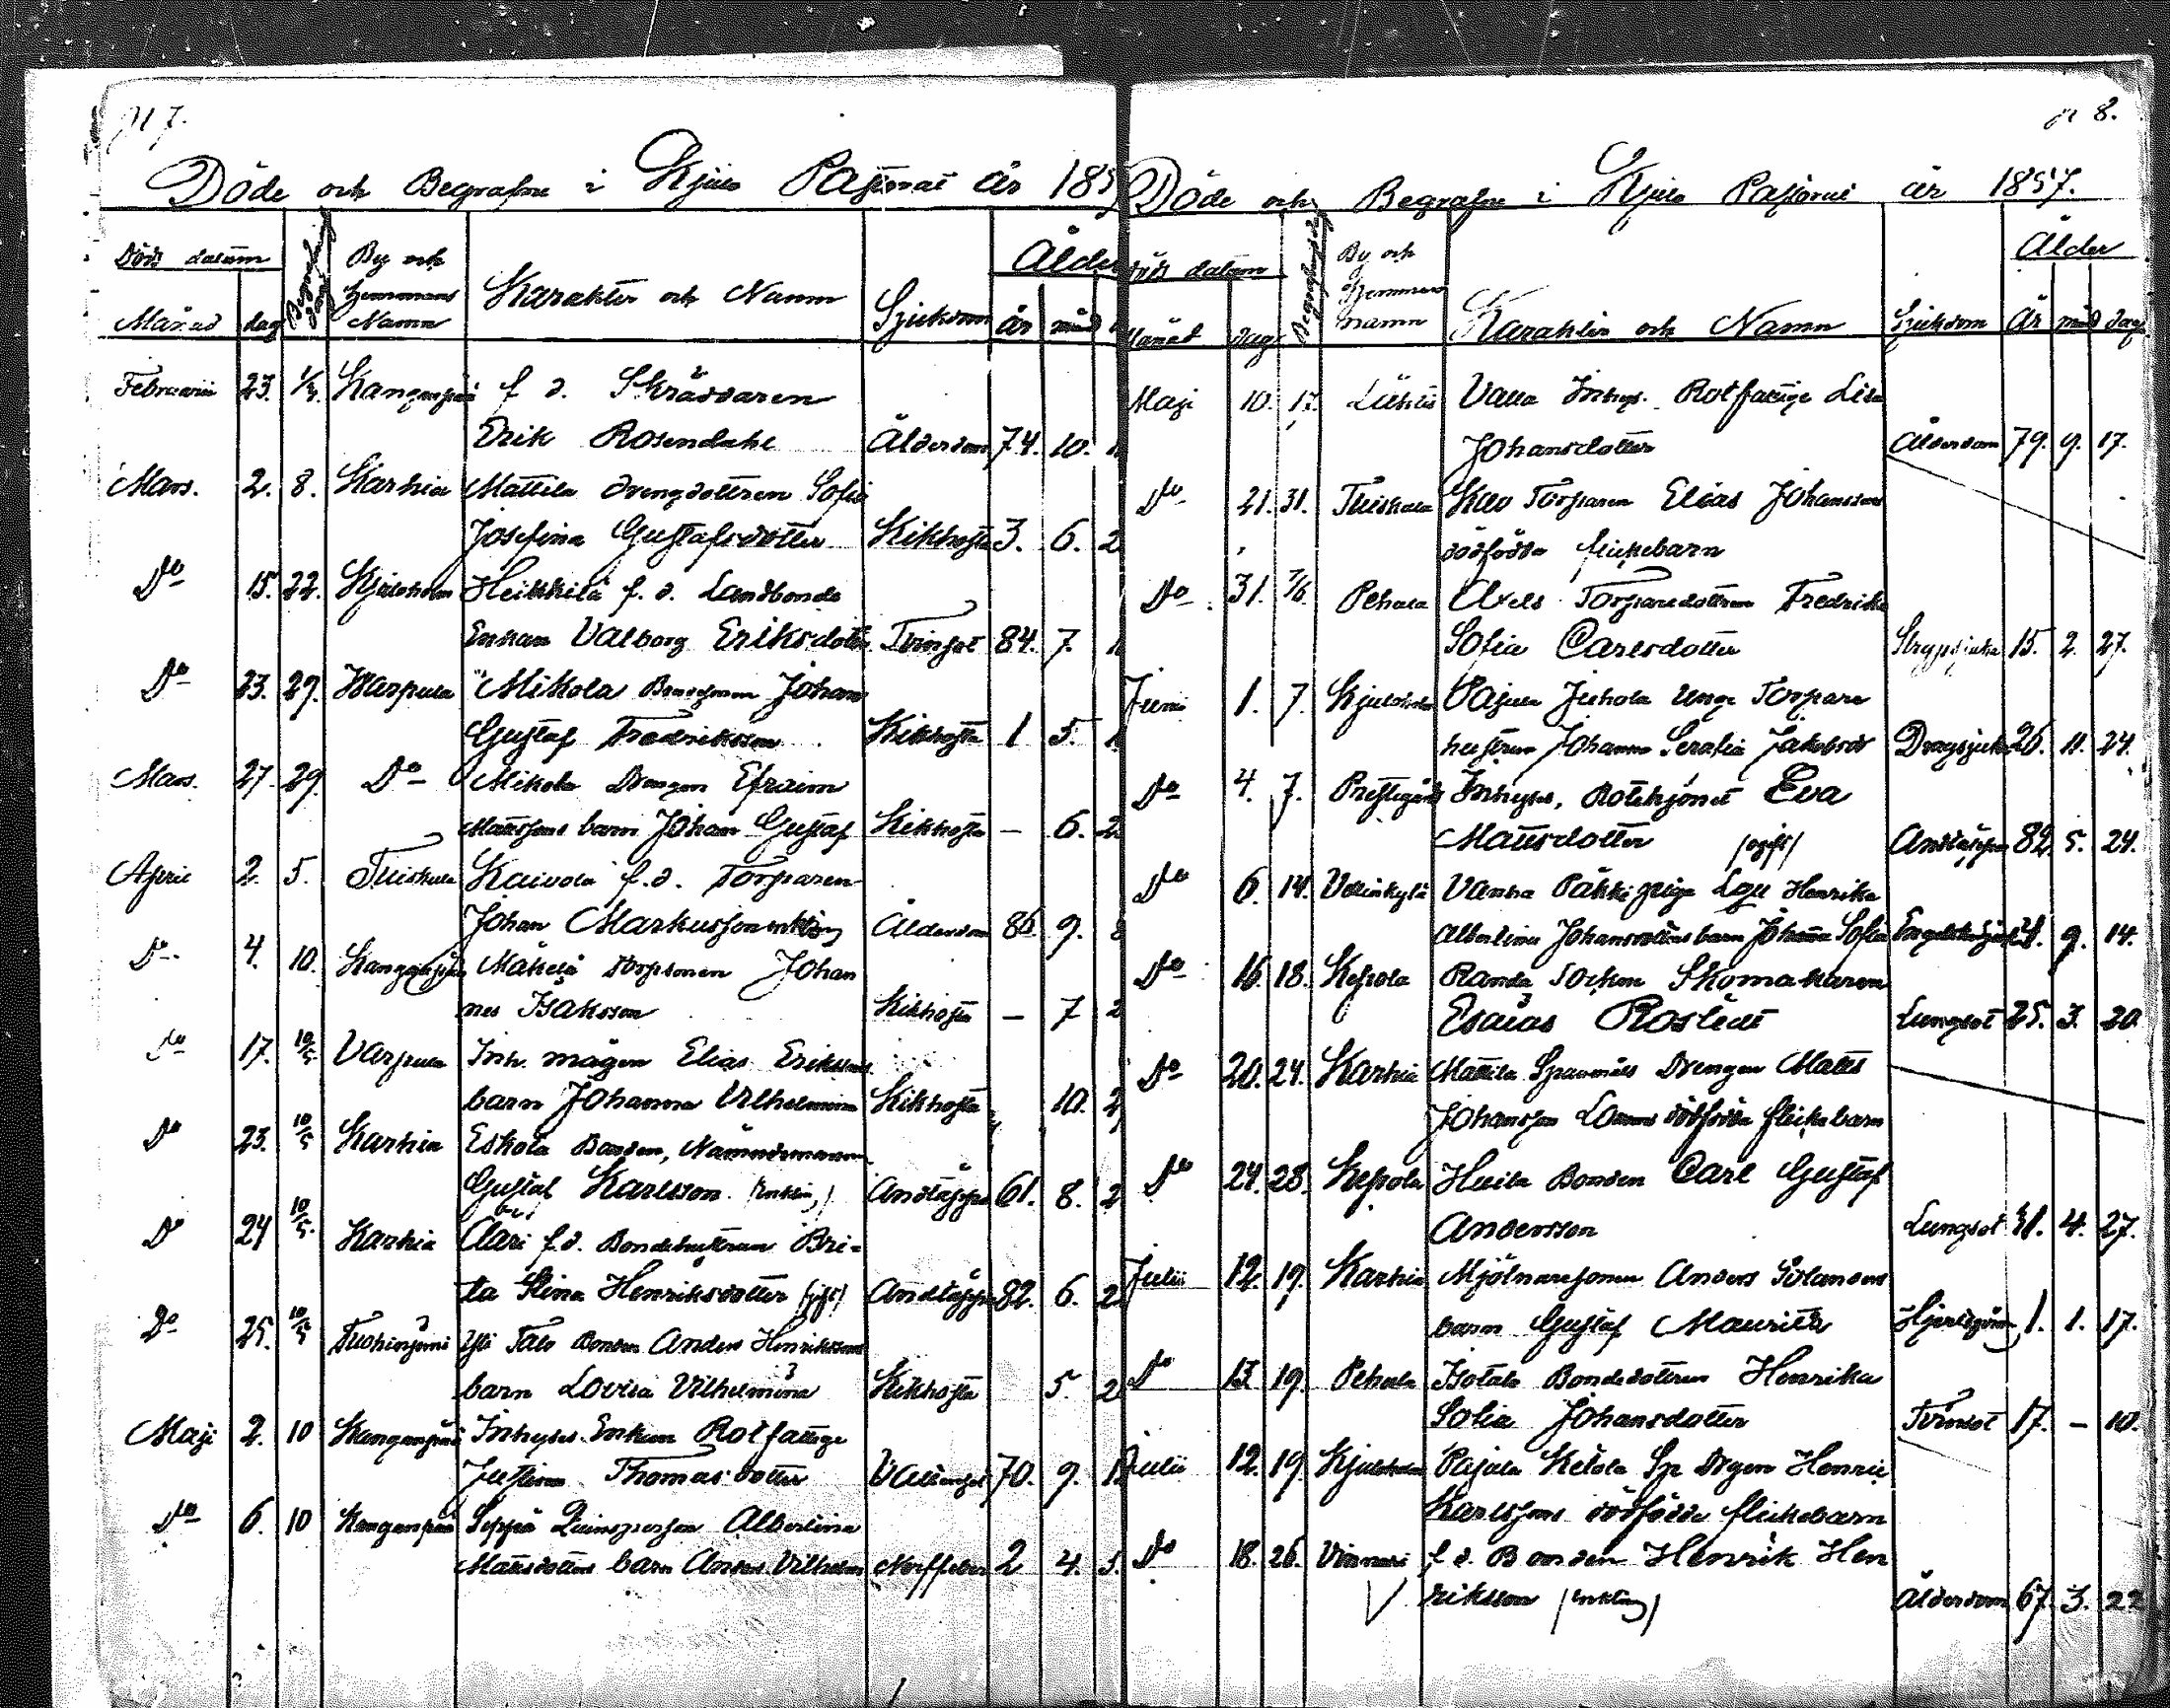 7.
Döde och Begrafne i Kjulo Pastorat år 185
Döds datum
Begrafningsdag
By och
Hemmans
Namn
Karakter och Namn
Sjukdom
Ålder
Månad dag
år mån
Februarii 23. 1/3. Kanganpää f. d. Skräddaren
Erik Rosendahl Ålderdom 74. 10.
Mars. 2. 8. Karhia Mattila drengdottren Sofia
Josefina Gustafsdotter Kikhosta 3. 6. 2
Do 15. 22. Kjuloholm Heikkilä f. d. Landbonde
Enkan Valborg Eriksdotter Tvinsot 84. 7.
Do 23. 29. Warpula Mikola Johan
Gustaf Fredriksson Kikhosta 1 5.
Mars. 27. 29. Do Mikola Drengen Efraim
Mattssons barn Johan Gustaf Kikhosta – 6. 2
April 2. 5. Tuiskula Kaivola f. d. Torparen
Johan Markusson enkling Ålderdom 86 9.
Do 4. 10. Kanganpää Mäkelä torpsonen Johan
nes Isaksson Kikhosta – 7 2
Do 17. 10/5. Varpula Inh. mågen Elias Erikssons
barn Johanna Vilhelmina Kikhosta 10. 2
Do 23. 10/5 Karhia Eskola Bonden, Nämndemannen
Gustaf Karlsson (enkling) Andtäppa 61. 8. 2
Do 24 10/5. Karhia f. d. Bondehustrun Bri-
ta Stina Henriksdotter (gift) Andtäppa 82. 6. 2
Do 25. 10/5 Yli Talo Bonden Anders Henrikssons
barn Lovisa Vilhelmina Kikhosta 5. 2
Maji 2. 10 Kanganpää Inhyses Enkan Rotfattige
Justina Thomasdotter 70. 9.
Do 6. 10 Kanganpää Seppä Albertina
Mattsdotters barn Anders Vilhelm Nerffeber 2 4. 5.
8.
Döde och Begrafne i Kjulo Pastorat år 1857.
Döds datum
Begrafningsdag
By och
Hemmans
namn
Karakter och Namn
Sjukdom
Ålder
Månad dag
År mån dag
Maji 10. 17. Inhys. Rotfattige Lisa
Johansdotter Ålderdom 79. 9. 17.
Do 21. 31. Tuiskula Torparen Elias Johanssons
dödfödda flickebarn
Do 31. 7/6. Pehula Axels Torparedottren Fredrika
Sofia Carlsdotter Strypsjuka 15. 2. 27.
Juni 1. 7. Kjuloholm Pajula Unge Torpare
hustrun Johanna Serafia Jakobsdr 26. 11. 24.
Do 4. 7. Prestegård Inhyses, Rotehjonet Eva
Mattsdotter (ogift) Andtäppa 82. 5. 24.
Do 6 14. Vanha Päkki piga Henrika
Albertina Johansdotters barn Johanna Sofia 9. 14.
Do 16. 18. Kepola Randa Sockne Skomakaren
Esaias Rostedt Lungsot 25. 3. 20.
Do 20. 24. Karhia Mattila Drengen Matts
Johansson dödfödda flickebarn
Do 24. 28. Kepola Huila Bonden Carl Gustaf
Andersson Lungsot 31. 4. 27.
Julii 12. 19. Karhia Mjölnaresonen Anders
barn Gustaf Mauritz 1. 1. 17.
Do 13. 19. Pehula Isotalo Bondedottren Henrika
Sofia Johansdotter Tvinsot 17. – 10.
Julii 12. 19 Kjuloholm Pajula Ketola Henric
Karlssons dödfödda flickebarn
Do 18. 26. Vinnari f. d. Bonden Henrik Hen
riksson (enkling) Ålderdom 67. 3. 22